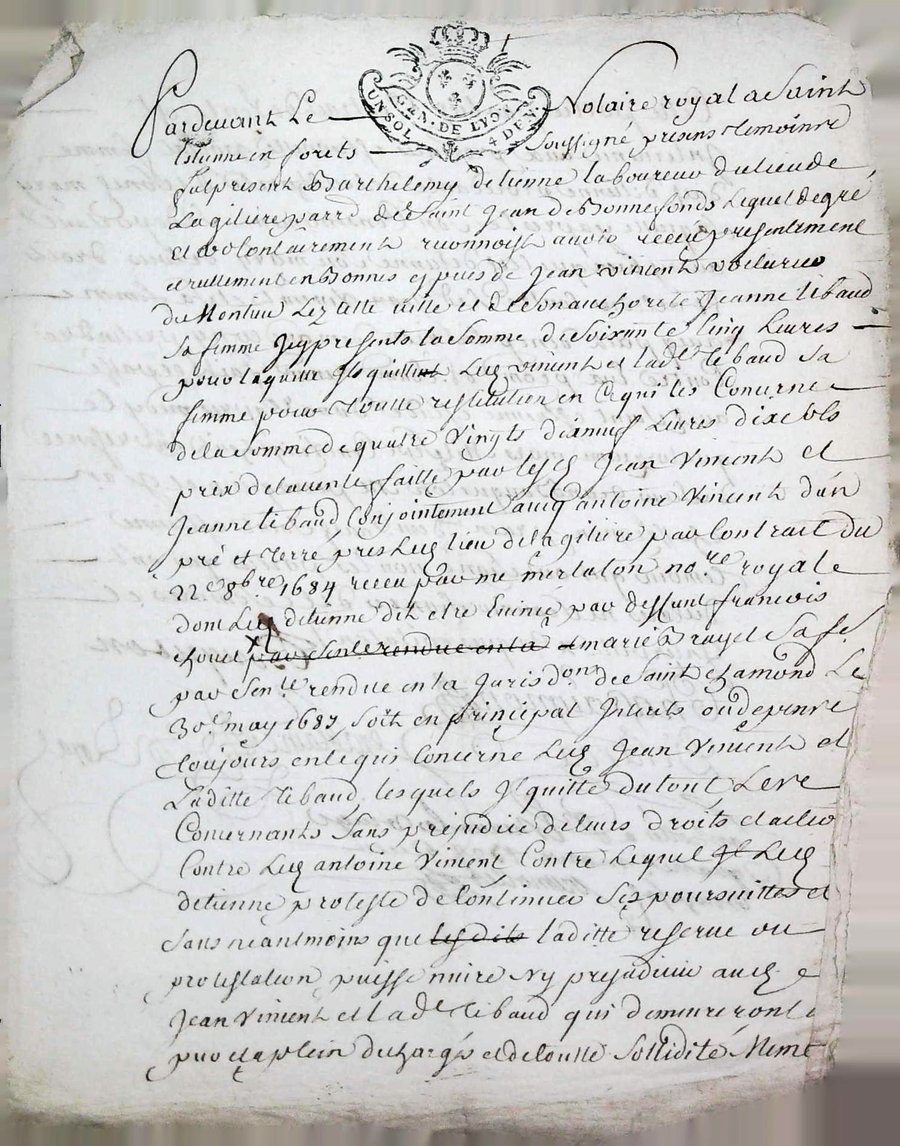 UN SOL GEN. DE LYON 4 DEN.
Pardevant Le Notaire royal a Saint
Estienne en forets soussigné presens temoins
fut present Barthelemy detienne laboureur du lieu de
La giliere parr.e de Saint Jean de Bonnefonds Lequel de gré
et volontairement reconnoist avoir receu presentement
et reellement en Bonnes espices de Jean vincent voiturier
du Lez cette ville et de son authorité Jeanne tebaud
sa femme Icy presents la somme de soixante Cinq Livres
pour laquelle Il quitte Led. vincent et lad.e tebaud sa
femme pour toutte restitution en Ce qui les Concerne
de la somme de quatre Vingts dix neuf Livres dix sols
prix de la vente faitte par lesd. Jean Vincent et
Jeanne tebaud Conjointement avecq antoine Vincent d'un
pré et terre pres Led. lieu de la giliere par Contrait du
22e 8bre 1684 receu par me no.re royal
dont Led. detienne dit etre Evincé par deffunt francois
chovet par sen.ce rendue en la et marie royet sa fe.
par sen.ce rendue en la Jurisd.on de Saint chamond Le
30e may 1687 soit en principal Interets ou depens
toujours en ce qui Concerne Led. Jean Vincent et
Laditte tebaud lesquels Il quitte du tout Le Les
Concernants sans prejudice de leurs droits et action
Contre Led. antoine Vincent Contre Lequel Il Led.
detienne proteste de Continuer ses poursuittes et
sans neantmoins que lesdits laditte reserve ou
protestation puisse nuire ny prejudicier aud.
Jean Vincent et lad.e tebaud qui demeureront
pur et a plein dechargés et de toutte sollidité Meme